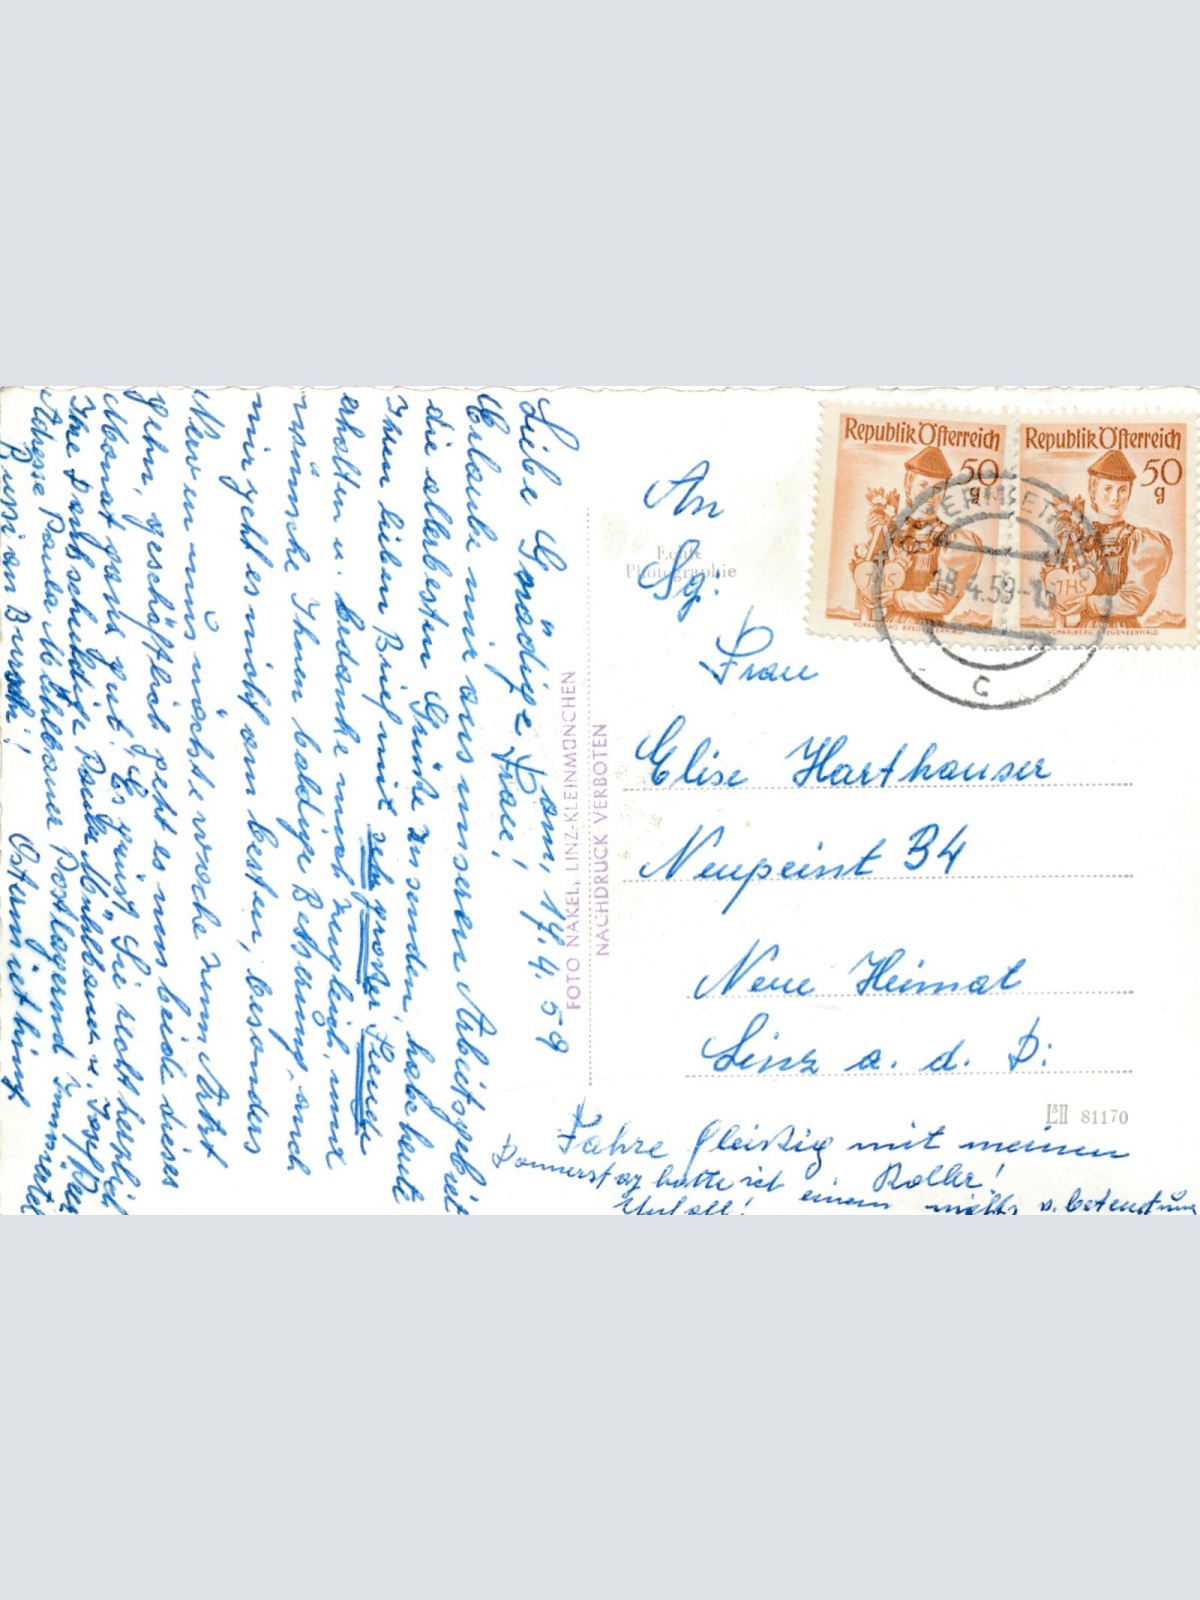 am, 17.4.59
Liebe Gnädige Frau!
Erlaube mir aus unseren Arbeitsgebiet
die allerbesten Grüße zu senden, habe heute
Ihren lieben Brief mit sehr großer Freude
erhalten u. bedanke mich zugleich, und
wünsche Ihnen baldige Besserung, auch
mir geht es nicht am besten, besonders
Nerven muß nächste woche zum Arzt
gehn, geschäftlich geht es uns beide dieses
Monat ganz gut. Es grüst Sie recht herzlich
Ihre Dankschuldige Paula Mühlbauer u. Josef
Adresse Paula Mühlbauer Postlagernd
Bussi an Burschi! Ostermiething
An
Sg.
Frau
Elise Harthauser
Neupeint 34
Neue Heimat
Linz a. d. D:
Fahre fleißig mit meinen
Roller!
Donnerstag hatte ich einem nichts v. beteutung
Unfall!
Echte
Photographie
FOTO NAKEL, LINZ-KLEINMÜNCHEN
NACHDRUCK VERBOTEN
L&H 81170
Republik Österreich
50
g
JHS
VORARLBERG BREGENZERWALD
Republik Österreich
50
g
JHS
VORARLBERG BREGENZERWALD
OSTERMIETHING
18.4.59-10
C